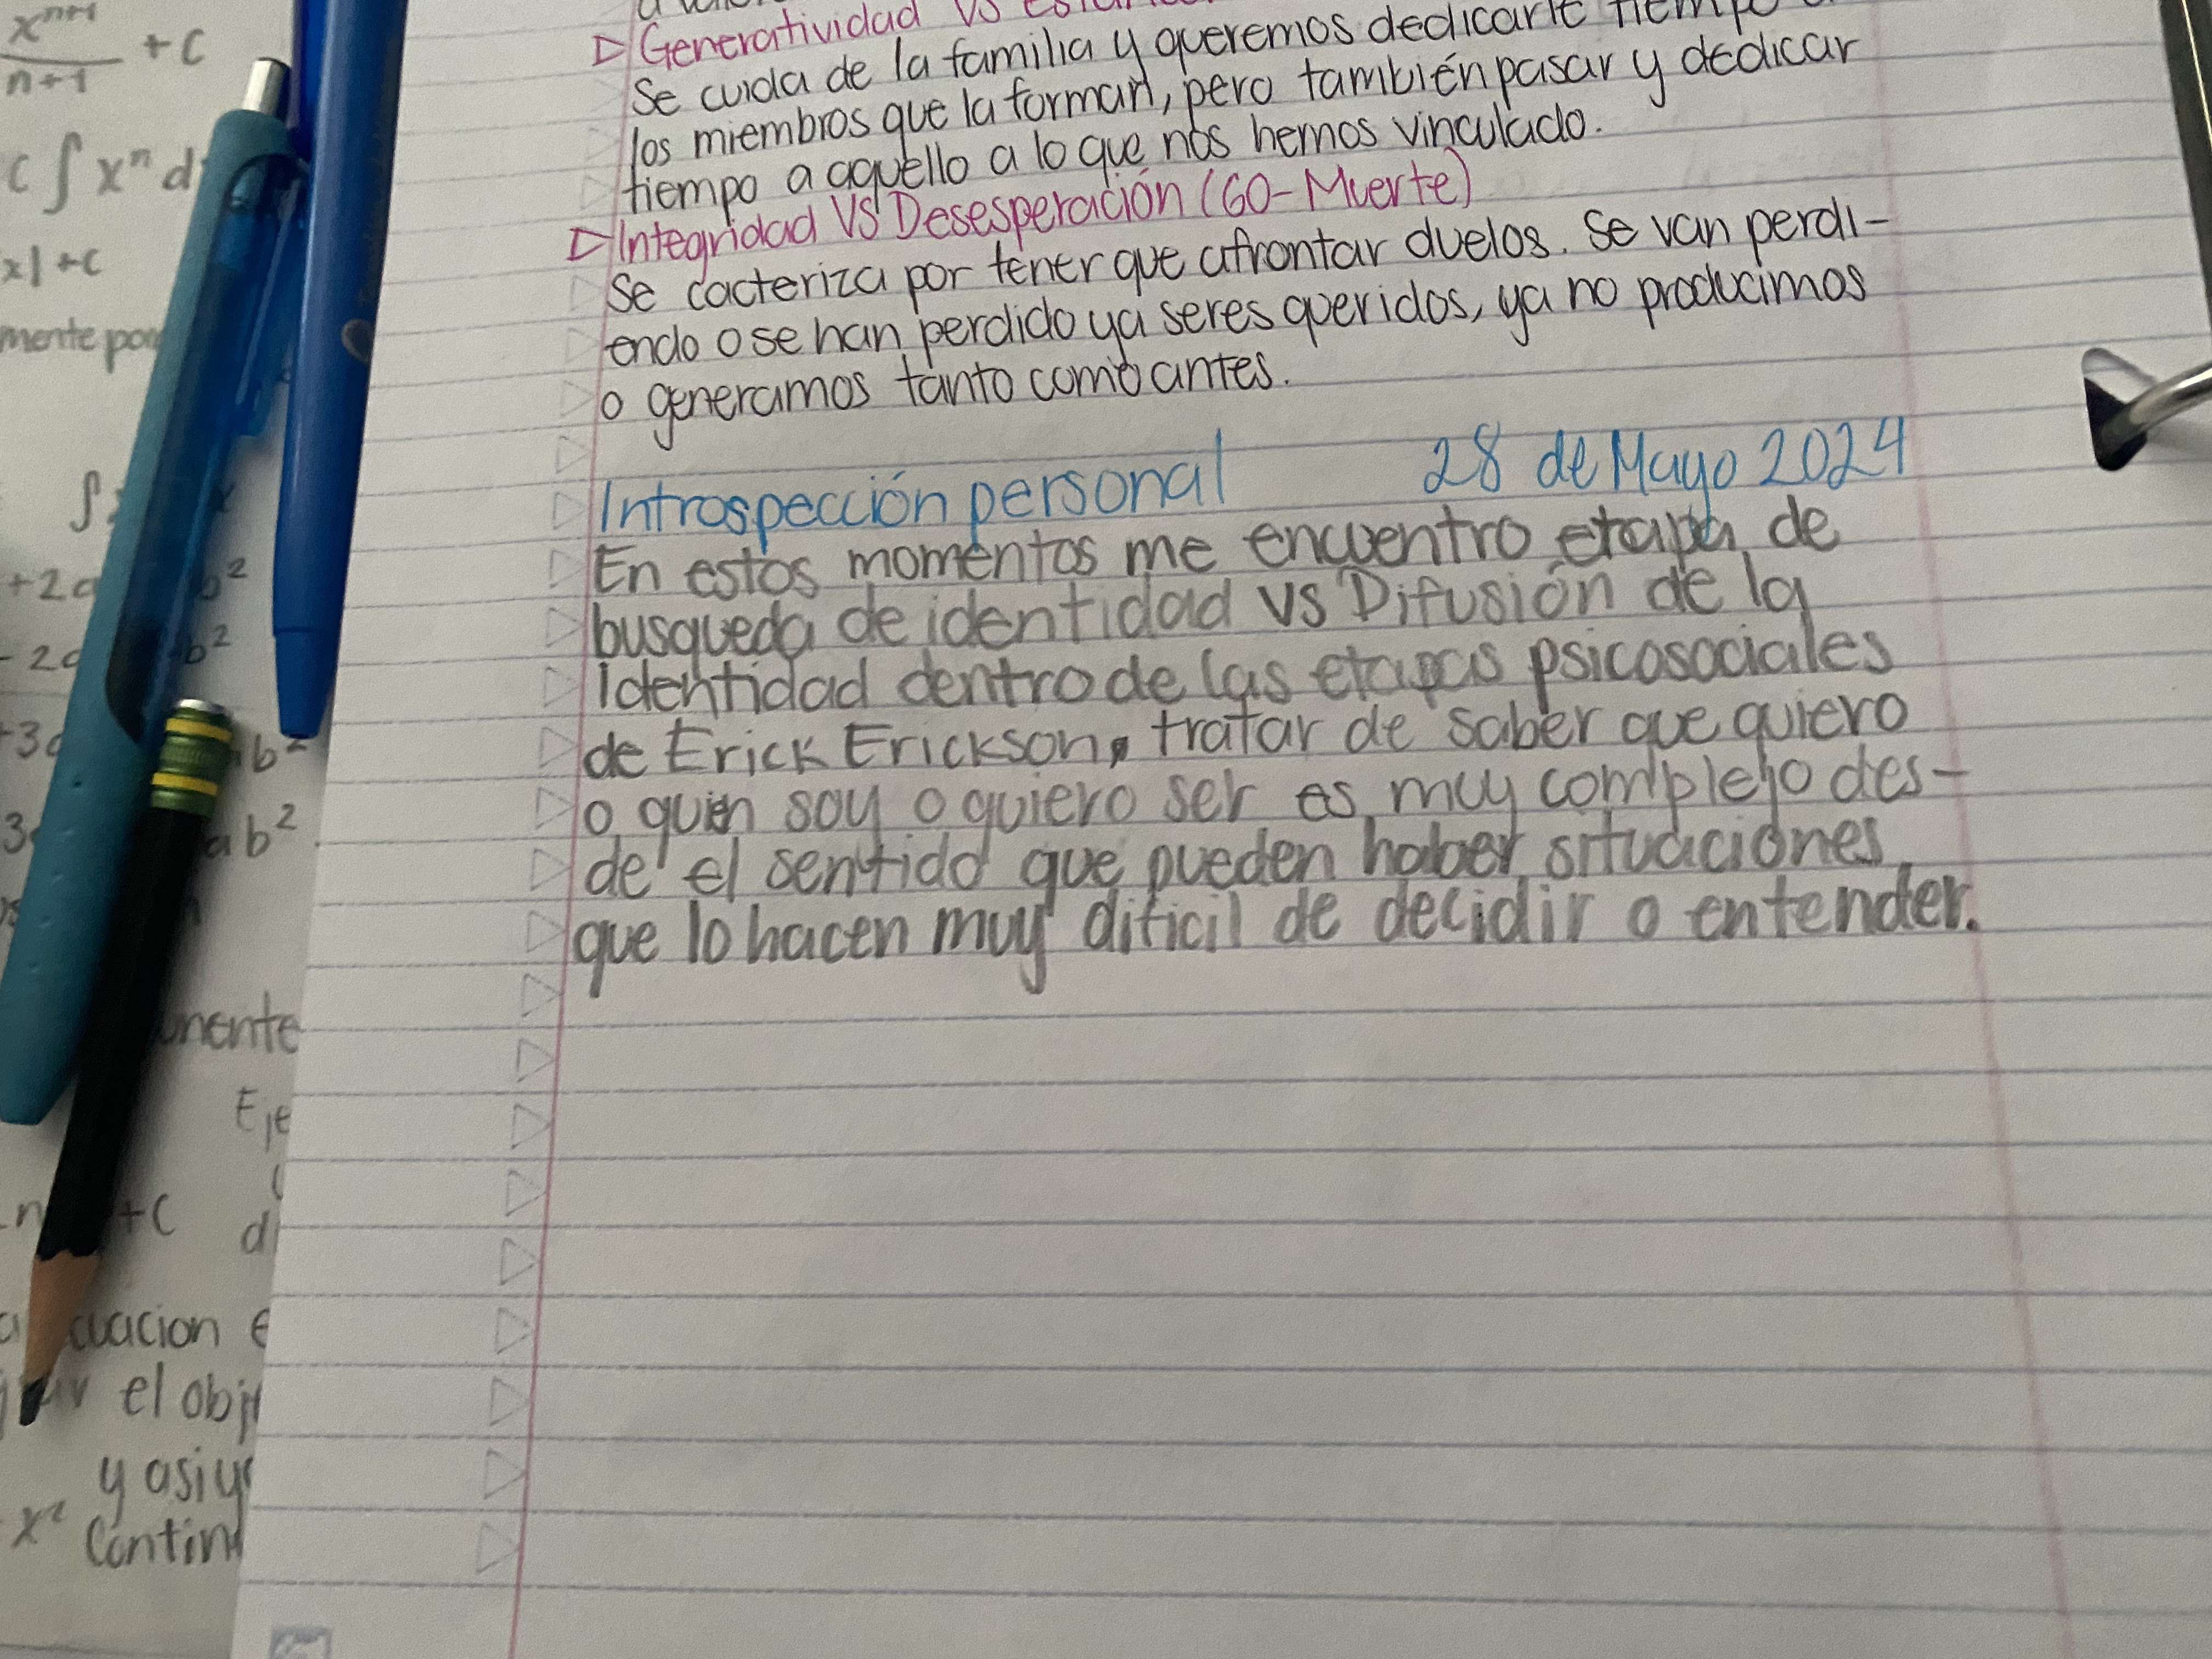 x^{n+1}
n+1
+C
C ∫ x^n d
x|+c
mente por
∫
+2a
b²
- 2a
b²
+3a
ab²
3a
ab²
onente
Eje
+C
d
uacion e
el obj
y asi y
x² Contin
▷ Generatividad VS
Se cuida de la familia y queremos dedicarle tiempo
los miembros que la forman, pero también pasar y dedicar
tiempo a aquello a lo que nos hemos vinculado.
▷ Integridad VS Desesperación (60-Muerte)
Se cacteriza por tener que afrontar duelos. Se van perdi-
endo o se han perdido ya seres queridos, ya no producimos
o generamos tanto como antes.
Introspección personal 28 de Mayo 2024
En estos momentos me encuentro etapa de
busqueda de identidad vs Difusión de la
identidad dentro de las etapas psicosociales
de Erick Erickson, tratar de saber que quiero
o quien soy o quiero ser es muy complejo des-
de el sentido que pueden haber situaciones
que lo hacen muy dificil de decidir o entender.